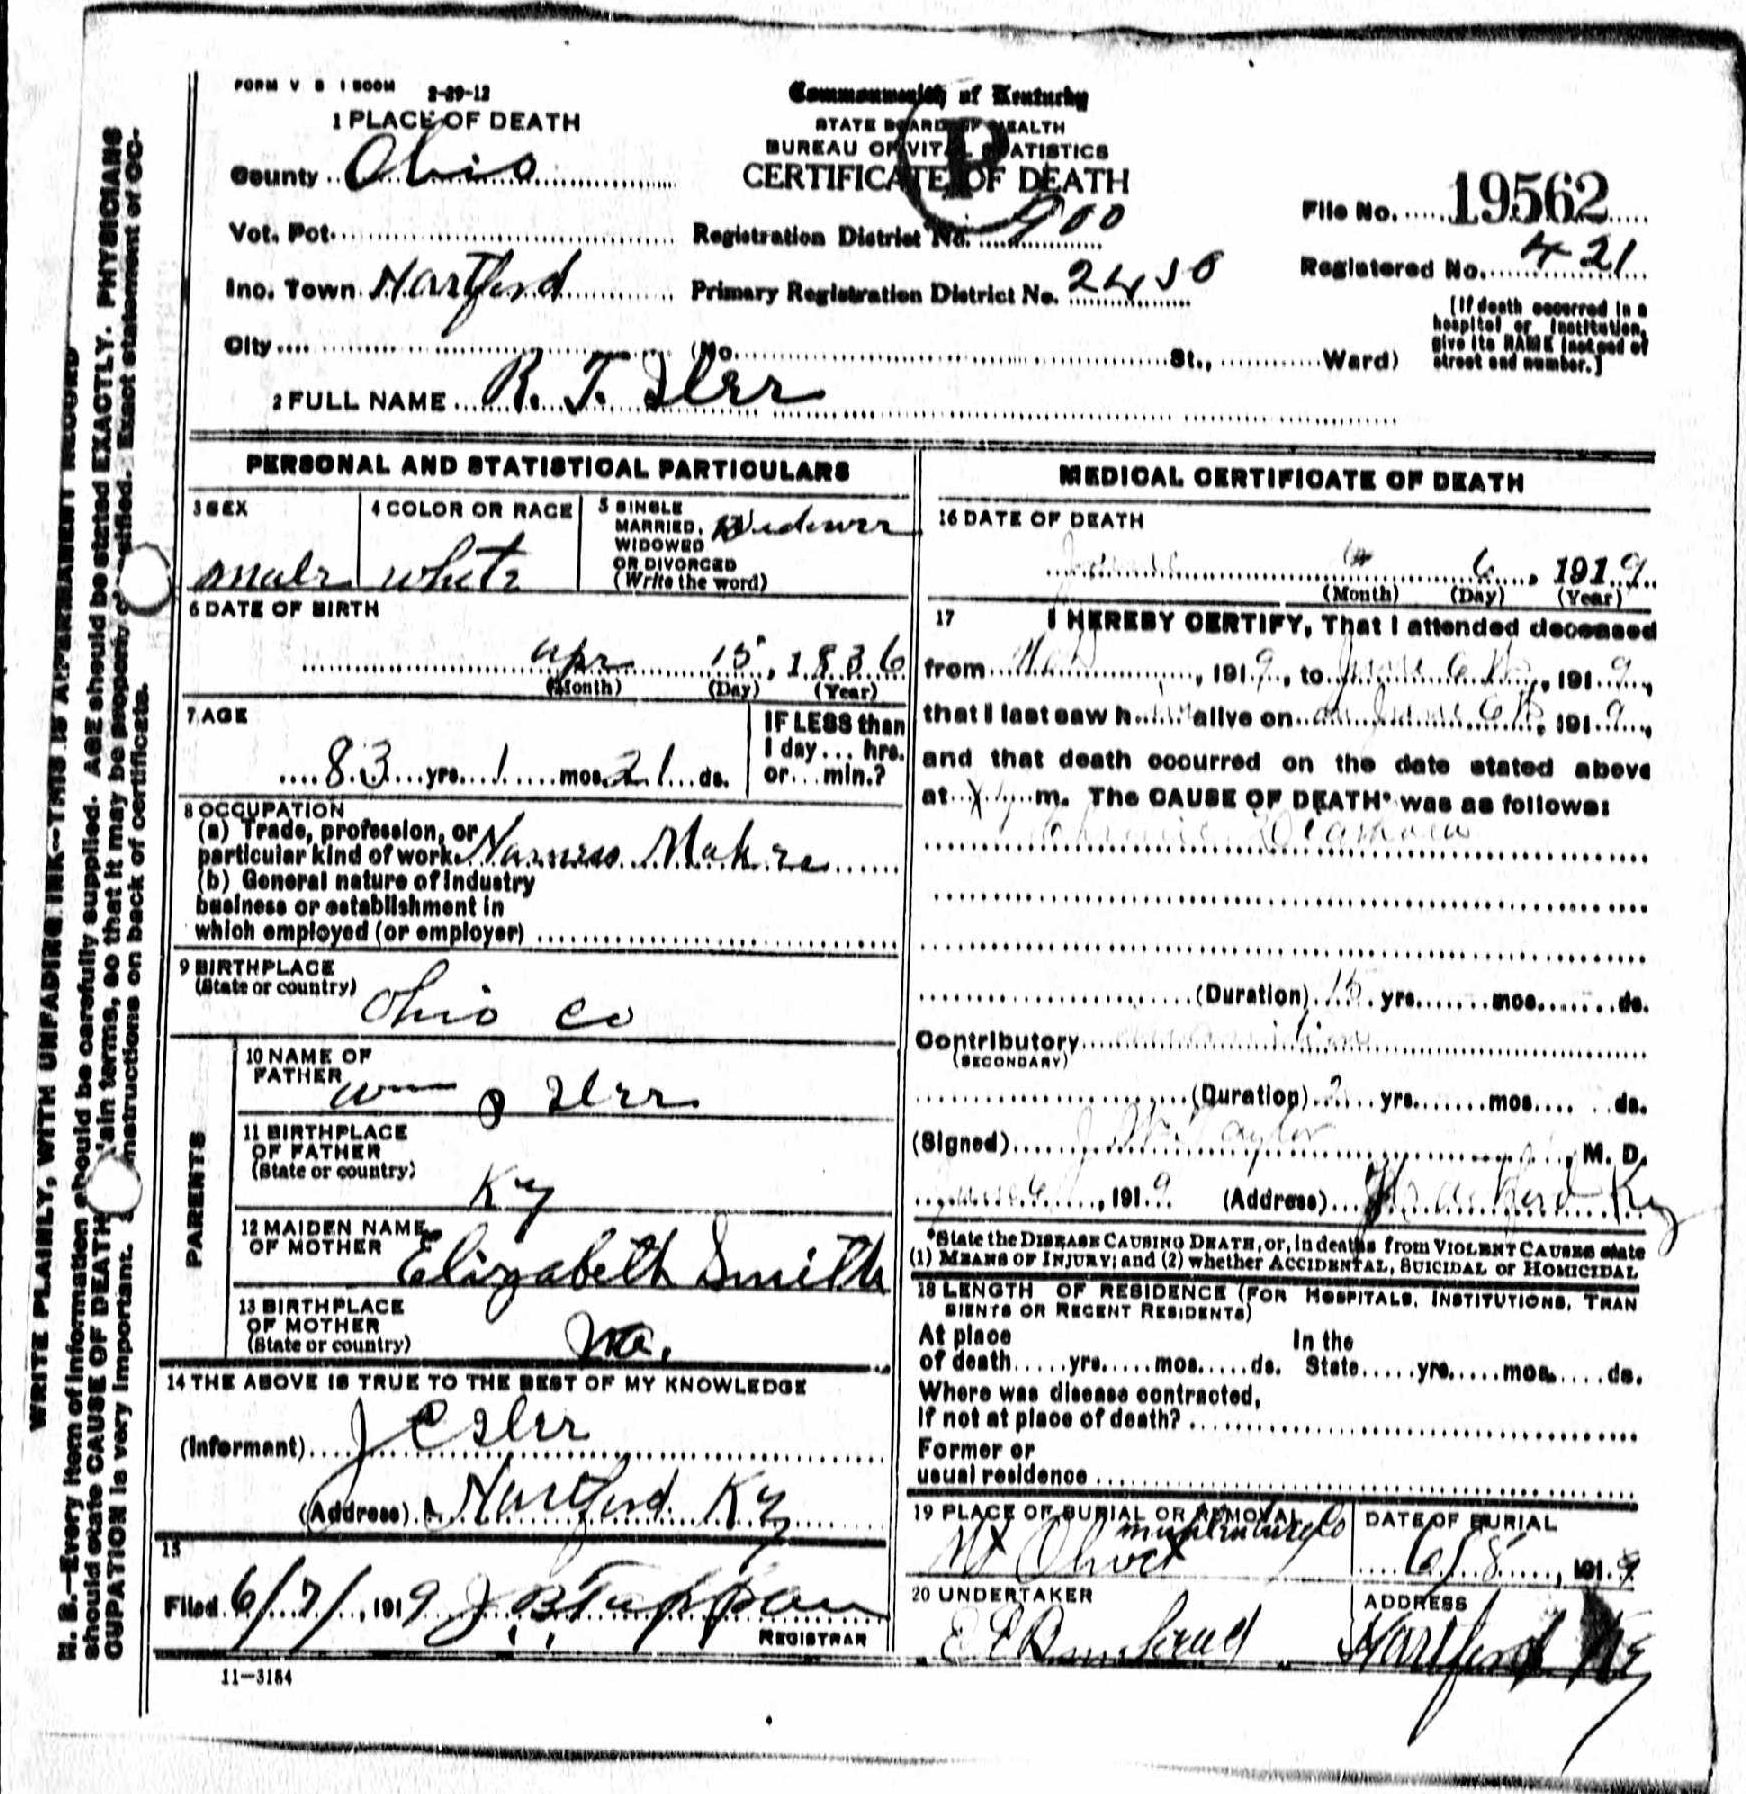 FORM V S 1 500M 2-29-12
Commonwealth of Kentucky
STATE BOARD OF HEALTH
BUREAU OF VITAL STATISTICS
CERTIFICATE OF DEATH
1 PLACE OF DEATH
County Ohio
File No. 19562
Vot. Pct. Registration District No. 900
Registered No. 421
Inc. Town Hartford Primary Registration District No.
City (No. St., Ward)
[If death occurred in a hospital or institution, give its NAME instead of street and number.]
2 FULL NAME R. T. Iler
PERSONAL AND STATISTICAL PARTICULARS
3 SEX male
4 COLOR OR RACE white
5 SINGLE MARRIED, WIDOWED OR DIVORCED (Write the word) Widower
6 DATE OF BIRTH
Apr 15, 1836
(Month) (Day) (Year)
7 AGE
83 yrs. 1 mos. 21 ds.
IF LESS than 1 day ... hrs. or ... min.?
8 OCCUPATION
(a) Trade, profession, or
particular kind of work Harness Maker
(b) General nature of industry
business or establishment in
which employed (or employer)
9 BIRTHPLACE
(State or country) Ohio Co
PARENTS
10 NAME OF FATHER Wm Iler
11 BIRTHPLACE OF FATHER (State or country) Ky
12 MAIDEN NAME OF MOTHER Elizabeth Smith
13 BIRTHPLACE OF MOTHER (State or country)
14 THE ABOVE IS TRUE TO THE BEST OF MY KNOWLEDGE
(Informant) J C Iler
(Address) Hartford Ky
15
Filed 6/7/, 1919 J. B. Tappan
REGISTRAR
11—3184
MEDICAL CERTIFICATE OF DEATH
16 DATE OF DEATH
June 6, 1919
(Month) (Day) (Year)
17 I HEREBY CERTIFY, That I attended deceased
from , 1919, to June 6th, 1919,
that I last saw him alive on June 6th, 1919,
and that death occurred on the date stated above
at m. The CAUSE OF DEATH* was as follows:
Chronic Diarrhoea
(Duration) 15 yrs. mos. ds.
Contributory
(SECONDARY)
(Duration) 2 yrs. mos. ds.
(Signed) Taylor, M. D.
June 6, 1919 (Address) Ky
*State the DISEASE CAUSING DEATH, or, in deaths from VIOLENT CAUSES state
(1) MEANS OF INJURY; and (2) whether ACCIDENTAL, SUICIDAL or HOMICIDAL
18 LENGTH OF RESIDENCE (FOR HOSPITALS, INSTITUTIONS, TRAN
SIENTS OR RECENT RESIDENTS)
At place In the
of death yrs. mos. ds. State yrs. mos. ds.
Where was disease contracted,
If not at place of death?
Former or
usual residence
19 PLACE OF BURIAL OR REMOVAL
Muhlenburg Co
Mt Olivet
DATE OF BURIAL
6/8, 1919
20 UNDERTAKER
ADDRESS
Hartford Ky
WRITE PLAINLY, WITH UNFADING INK—THIS IS A PERMANENT RECORD
N. B.—Every item of information should be carefully supplied. AGE should be stated EXACTLY. PHYSICIANS
should state CAUSE OF DEATH in plain terms, so that it may be properly classified. Exact statement of OC-
CUPATION is very important. See instructions on back of certificate.